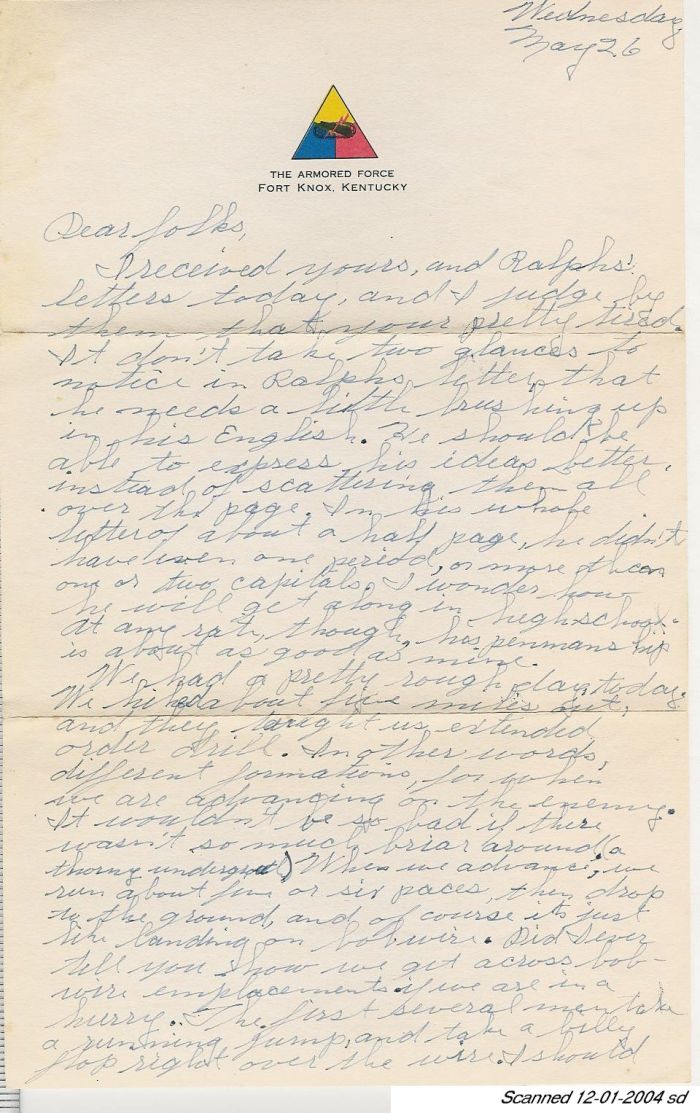 Wednesday
May 26
THE ARMORED FORCE
FORT KNOX, KENTUCKY
Dear folks,
I received yours, and Ralphs'
letters today, and I judge by
them that your pretty tired.
It don't take two glances to
notice in Ralphs letter, that
he needs a little brushing up
in his English. He should be
able to express his ideas better,
instead of scattering them all
over the page. In his whole
letter of about a half page, he didn't
have even one period, or more than
one or two capitals. I wonder how
he will get along in highschool.
At any rate, though, his penmanship
is about as good as mine.
We had a pretty rough day today.
We hiked about five miles out,
and they taught us extended
order drill. In other words,
different formations, for when
we are advancing on the enemy.
It wouldn't be so bad if there
wasn't so much briar around (a
thorny undergrowth) When we advance, we
run about five or six paces, then drop
to the ground, and of course its just
like landing on bobwire. Did I ever
tell you how we get across bob-
wire emplacements if we are in a
hurry. The first several men take
a running jump, and take a belly
flop right over the wire. I should
Scanned 12-01-2004 sd